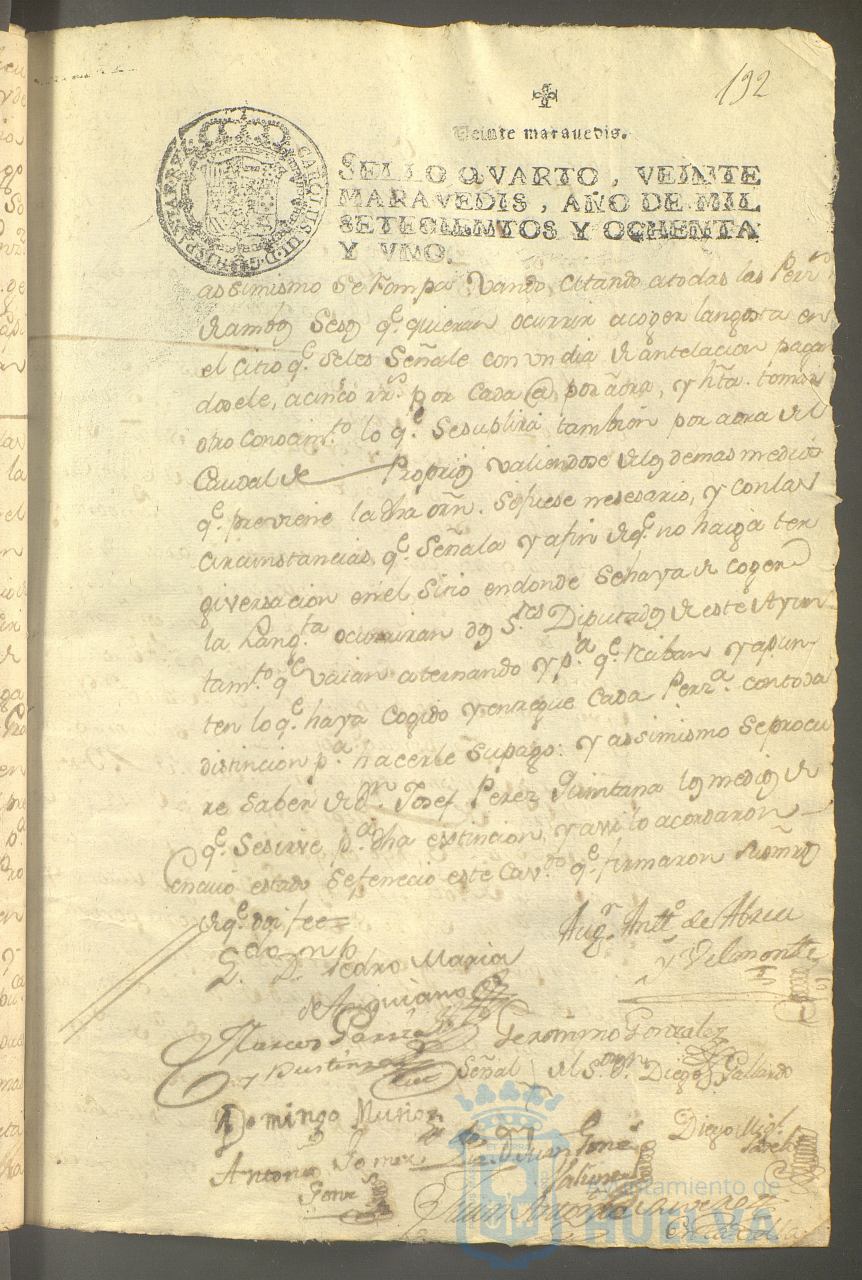 192
Veinte maravedis.
SELLO QVARTO, VEINTE
MARAVEDIS, AÑO DE MIL
SETECIENTOS Y OCHENTA
Y VNO.
CAROLUS III D G HISPANIAR REX
assimismo se rompa Vando, citando a todas las Perzs
de ambos Sesos q.e quieran ocurrir a coger langosta en
el citio q.e seles Señale con un dia de antelacion pagan
dosele, a cinco rr.s por cada @ por aora, y hta. tomar
otro conocim.to lo q.e se suplirà tambien por aora del
Caudal de Proprios valiendose de los demas medios
q.e previene la dha orn. se fuese nesesario, y con las
circunstancias q.e Señala y afin de q.e no haiga ter
giversacion en el sitio en donde se haya de coger
la Lang.ta ocurriran dos S.res Diputados de este Ayun
tam.to q.e vaian alternando y p.a q.e reciban y apun-
ten lo q.e haya cogido y entregue cada Perz.a con toda
distincion p.a hacerle su pago: y assimismo se procu
re saber de d.n Josef Perez Quintana los medios de
q.e se sirve p.a dha extincion, y assi lo acordaron
en cuio estado se fenecio este Cav.do q.e firmaron sus mrds
de q.e doi fee=
Aug.n Antt.o de Abreu
y Velmonte
L.do D. n Pedro Maria
de Anguiano
Marcos Garzia
Geronimo Gonzalez
Señal del S.or D.n Diego Gallardo
Domingo Muñoz
Diego Mig.l
Antonio Gomez
D. Juan Gonz
Juan
Ayuntamiento de
HUELVA